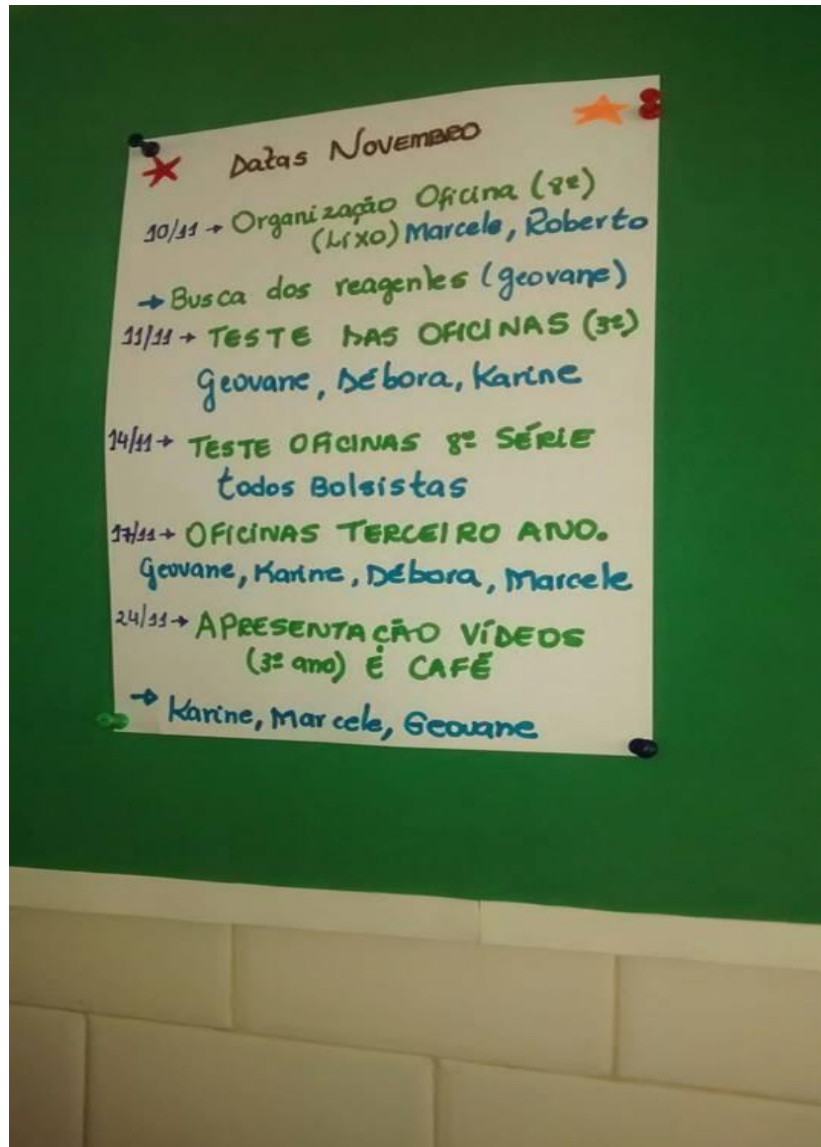 Datas NOVEMBRO
10/11 → Organização Oficina (8ª)
(Lixo) Marcele, Roberto
→ Busca dos reagentes (geovane)
11/11 → TESTE DAS OFICINAS (3º)
Geovane, Débora, Karine
14/11 → TESTE OFICINAS 8ª SÉRIE
todos Bolsistas
17/11 → OFICINAS TERCEIRO ANO.
Geovane, Karine, Débora, Marcele
24/11 → APRESENTAÇÃO VÍDEOS
(3º ano) E CAFÉ
→ Karine, Marcele, Geovane